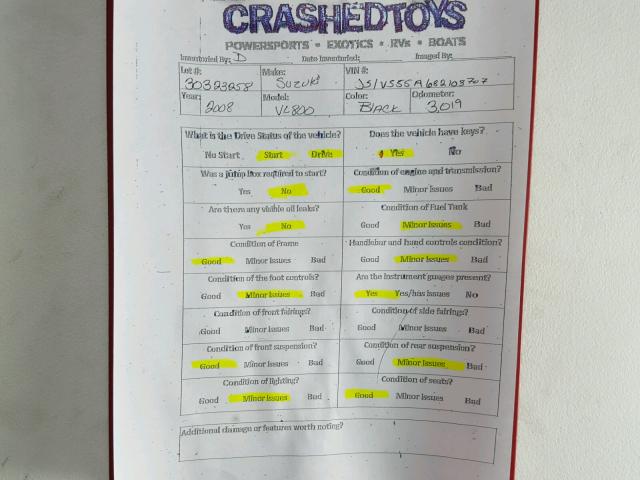 CRASHEDTOYS
POWERSPORTS • EXOTICS • RVs • BOATS
Inventoried By: D Date Inventoried: Imaged By:
Lot #: Make: VIN #:
30323258 SUZUKI JS1VS55A682103707
Year: Model: Color: Odometer:
2008 VL800 BLACK 3,019
What is the Drive Status of the vehicle? Does the vehicle have keys?
No Start Start Drive Yes No
Was a jump box required to start? Condition of engine and transmission?
Yes No Good Minor Issues Bad
Are there any visible oil leaks? Condition of Fuel Tank
Yes No Good Minor Issues Bad
Condition of Frame Handlebar and hand controls condition?
Good Minor Issues Bad Good Minor Issues Bad
Condition of the foot controls? Are the instrument guages present?
Good Minor Issues Bad Yes Yes/has issues No
Condition of front fairings? Condition of side fairings?
Good Minor Issues Bad Good Minor Issues Bad
Condition of front suspension? Condition of rear suspension?
Good Minor Issues Bad Good Minor Issues Bad
Condition of lighting? Condition of seats?
Good Minor Issues Bad Good Minor Issues Bad
Additional damage or features worth noting?